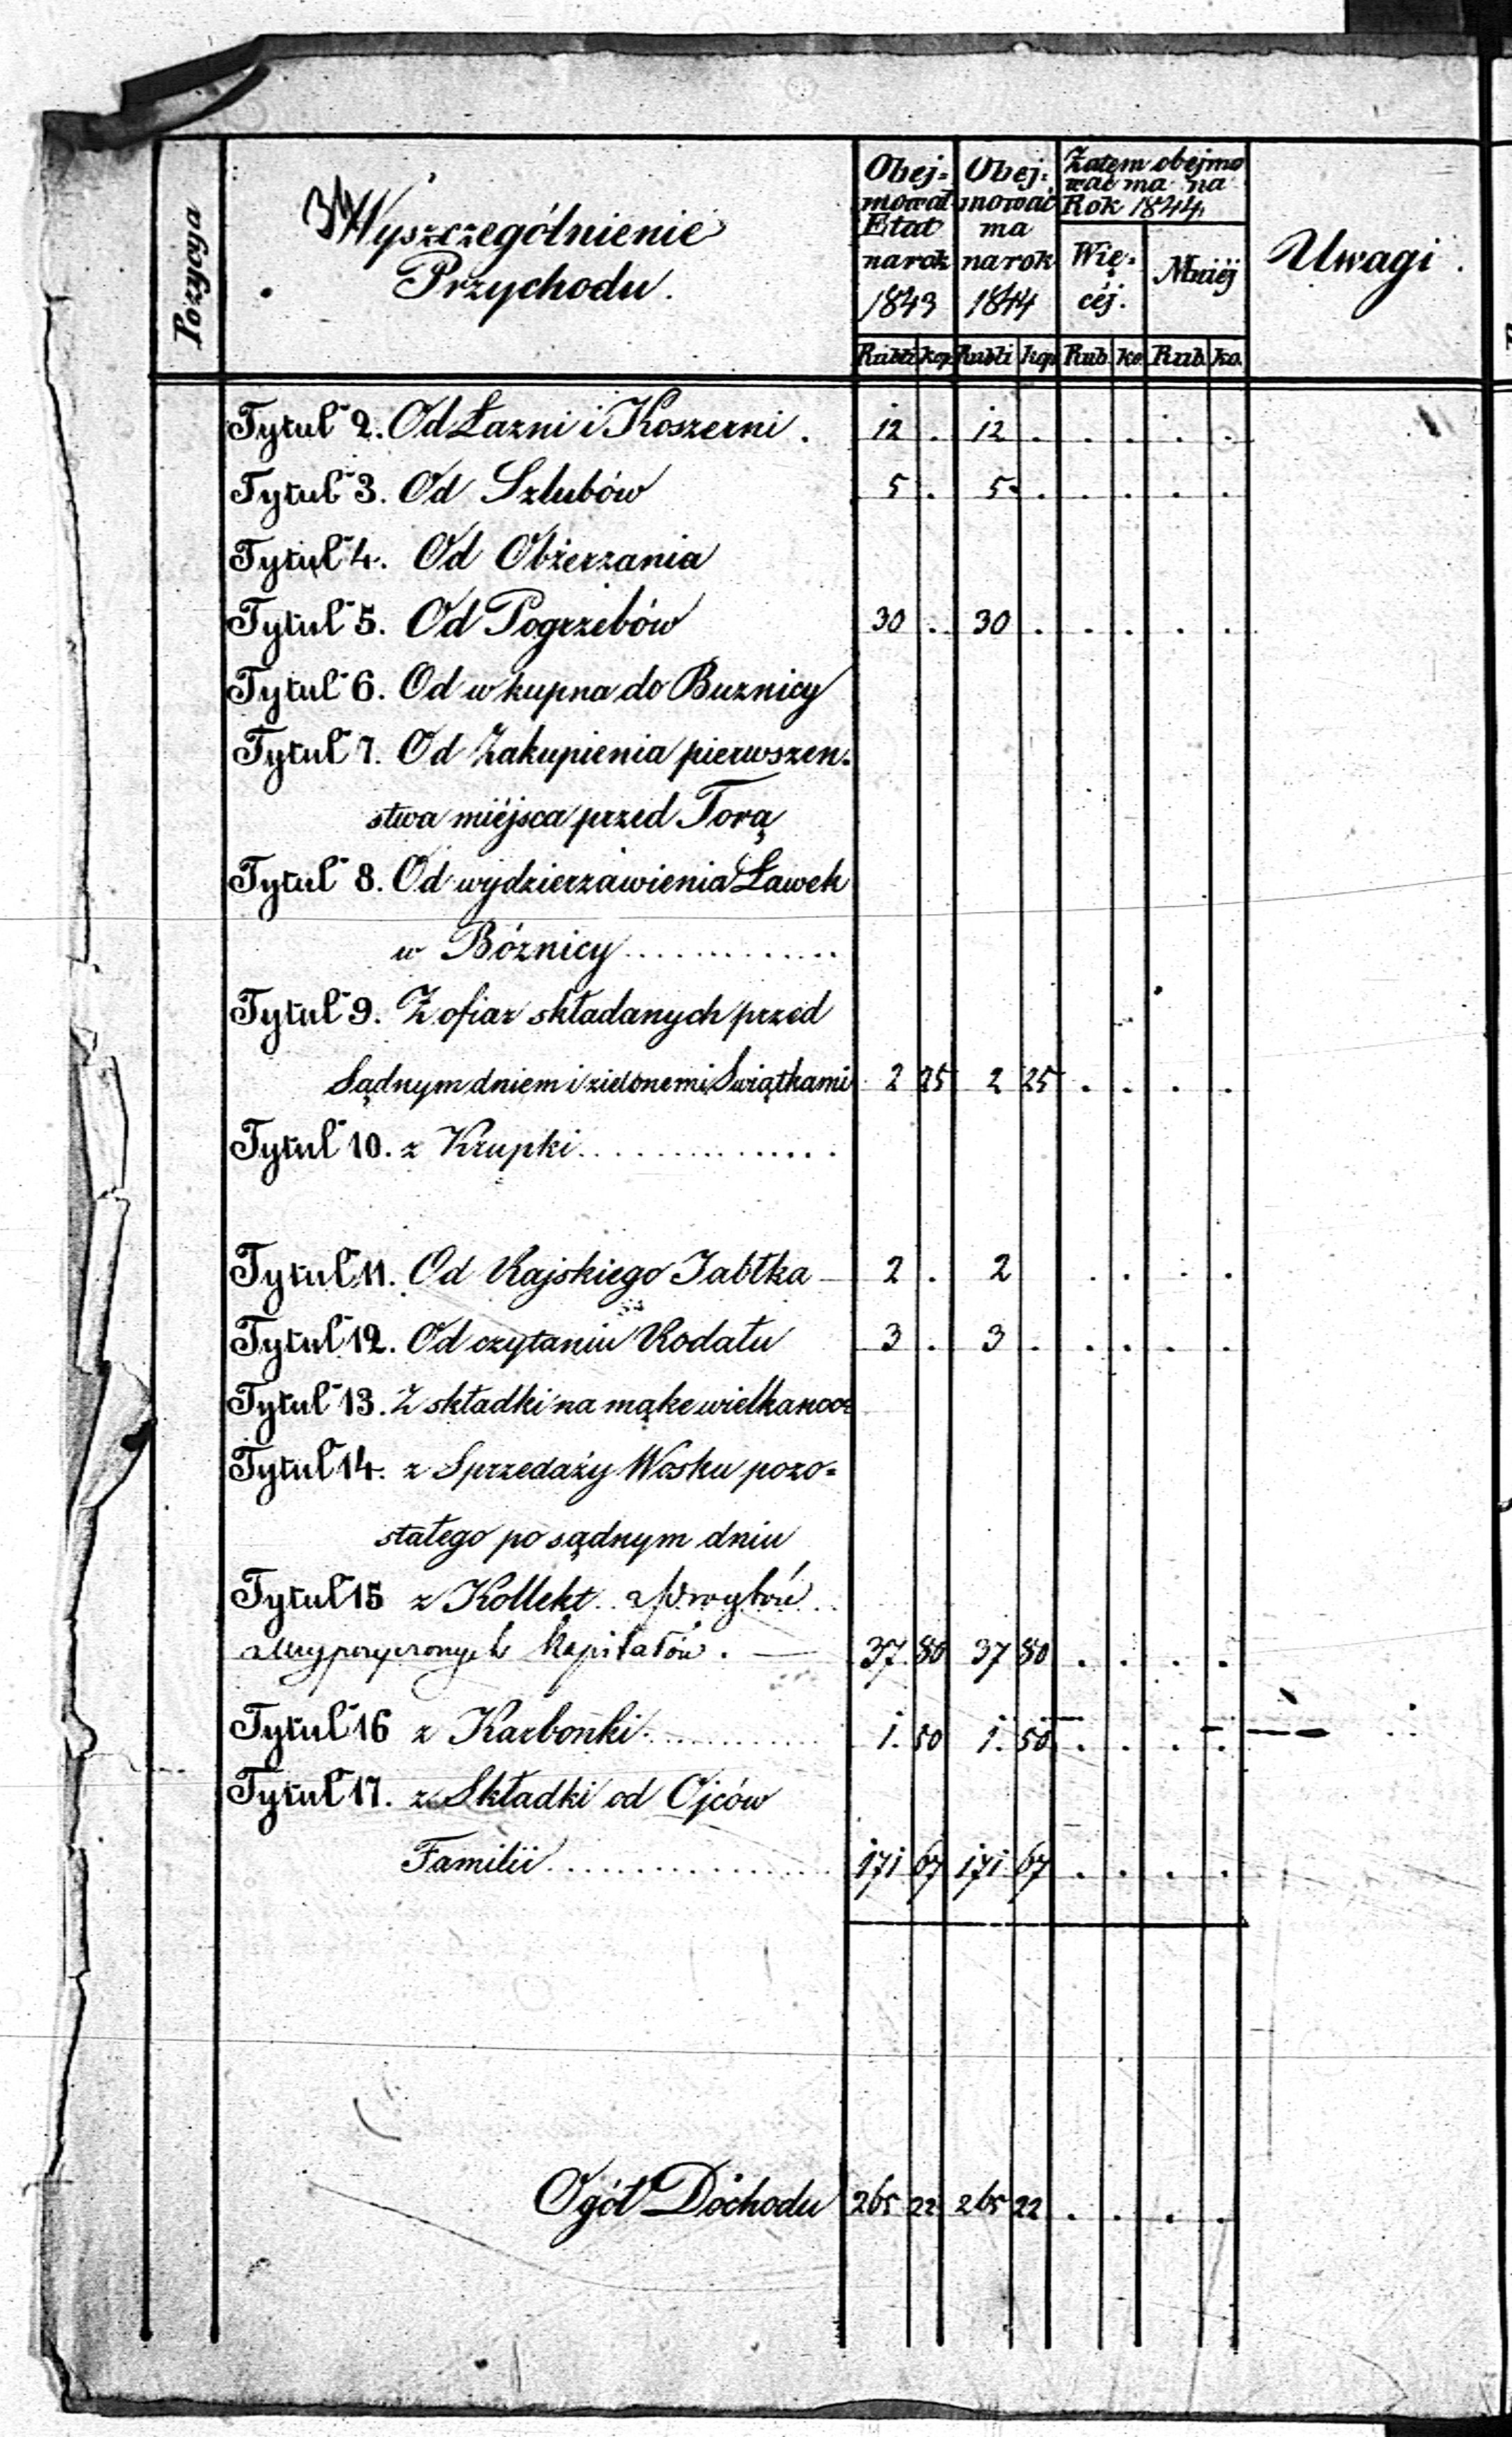 34
Pozycya
Wyszczególnienie
Przychodu.
Obej=
mował
Etat
na rok
1843
Obej=
mować
ma
na rok
1844
Zatem obejmo
wać ma na
Rok 1844
Wię=
céj.
Mniéj
Uwagi.
Rubli kop Rubli kop Rub. ko. Rub. ko.
Tytuł 2. Od Łazni i Koszerni. 12 . 12 . . . . .
Tytuł 3. Od Szlubów 5 . 5 . . . . .
Tytuł 4. Od Obżerzania
Tytuł 5. Od Pogrzebów 30 . 30 . . . . .
Tytuł 6. Od wkupna do Buznicy
Tytuł 7. Od Zakupienia pierwszen=
stwa miéjsca przed Torą
Tytuł 8. Od wydzierzawienia Ławek
w Bóznicy.............
Tytuł 9. Z ofiar składanych przed
Sądnym dniem i zielonemi Swiątkami 2 25 2 25 . . . .
Tytuł 10. z Krupki...............
Tytuł 11. Od Rajskiego Jabłka 2 . 2 . . . .
Tytuł 12. Od czytaniu Rodału 3 . 3 . . . . .
Tytuł 13. Z składki na mąke wielkanoc
Tytuł 14. z Sprzedaży Wosku pozo=
stałego po sądnym dniu
Tytuł 15 z Kollekt
Kapitałów. — 37 80 37 80 . . . .
Tytuł 16 z Karbonki............ 1. 50 1. 50 . . . .
Tytuł 17. z Składki od Ojców
Familii................. 171 67 171 67 . . . .
Ogół Dochodu 265 22 265 22 . . . .